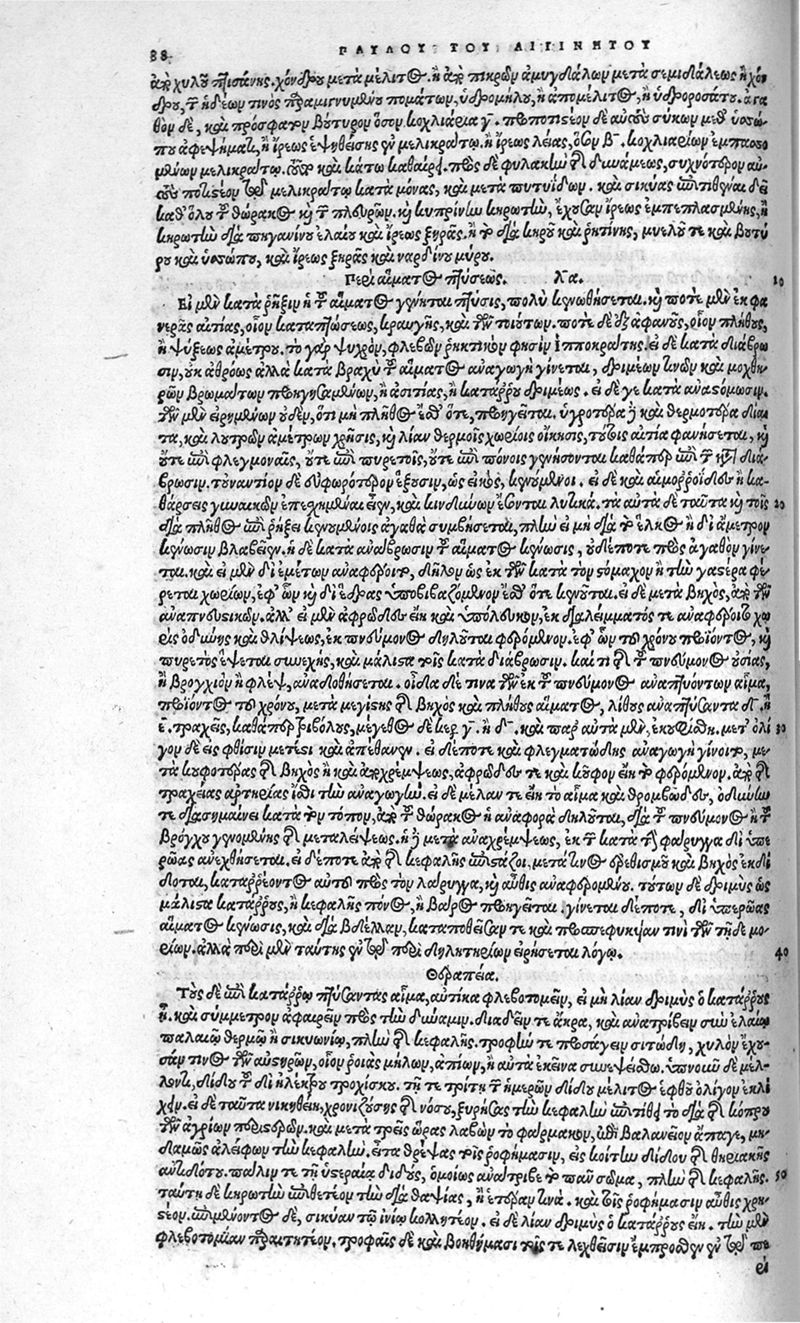 88. ΠΑΥΛΟΥ ΤΟΥ ΑΙΓΙΝΗΤΟΥ
ἀπὸ χυλοῦ πτισάνης. χόνδρου μετὰ μέλιτος. ἢ ἀπὸ πικρῶν ἀμυγδάλων μετὰ σεμιδάλεως ἢ χόν
δρου, τῶν ἡδέων τινὸς παραμιγνυμένου πομάτων, ὑδρομήλου, ἢ ἀπομέλιτος, ἢ ὑδροροσάτου. ἀγα
θὸν δὲ, καὶ πρόσφατον βούτυρον ὅσον κοχλιάρια γ. προποτιστέον δὲ αὐτοὺς σύκων μεθ' ὑσσώ-
που ἀφεψήματι, ἢ ἴρεως ἑψηθείσης ἐν μελικράτῳ, ἢ ἴρεως λείας, ὅσον β. κοχλιαρίων ἐμπασσο
μένων μελικράτῳ. τοῦτο καὶ κάτω καθαίρει. πρὸς δὲ φυλακὴν τῆς δυνάμεως, συχνότερον αὐ-
τοὺς ποτιστέον τῷ μελικράτῳ κατὰ μόνας, καὶ μετὰ πυτυΐδων. καὶ σικύας ἐπιτιθέναι δεῖ
καθ' ὅλου τοῦ θώρακος καὶ τῶν πλευρῶν. καὶ κυπρίνην κηρωτὴν, ἔχουσαν ἴρεως ἐμπεπλασμένης, ἢ
κηρωτὴν διὰ πηγανίνου ἐλαίου καὶ ἴρεως ξηρᾶς. ἢ τὸ διὰ κηροῦ καὶ ῥητίνης, μυελοῦ τε καὶ βουτύ
ρου καὶ ὑσσώπου, καὶ ἴρεως ξηρᾶς καὶ ναρδίνου μύρου.
Περὶ αἵματος πτύσεως. λα. 10
Εἰ μὲν κατὰ ῥῆξιν ἡ τοῦ αἵματος γένηται πτύσις, πολὺ κενωθήσεται. καὶ ποτὲ μὲν ἐκ φα
νερᾶς αἰτίας, οἷον καταπτώσεως, κραυγῆς, καὶ τῶν τοιούτων. ποτὲ δὲ ἐξ ἀφανοῦς, οἷον πλήθους,
ἢ ψύξεως ἀμέτρου. τὸ γὰρ ψυχρὸν, φλεβῶν ῥηκτικὸν φησὶν ἱπποκράτης. εἰ δὲ κατὰ διάβρω
σιν, οὐκ ἀθρόως ἀλλὰ κατὰ βραχὺ τοῦ αἵματος ἀναγωγὴ γίνεται, δριμέων τινῶν καὶ μοχθη
ρῶν βρωμάτων προηγησαμένων, ἢ ἀσιτίας, ἢ κατάρρου δριμέως. εἰ δέ γε κατὰ ἀναστόμωσιν.
τῶν μὲν εἰρημένων οὐδὲν, ὅτι μὴ πλῆθος ἔσθ' ὅτε, προηγεῖται. ὑγροτέρα δὲ καὶ θερμοτέρα δίαι
τα, καὶ λουτρῶν ἀμέτρων χρῆσις, καὶ λίαν θερμοῖς χωρίοις οἴκησις, τούτοις αἰτία φανήσεται, καὶ
οὔτε ἐπὶ φλεγμοναῖς, οὔτε ἐπὶ πυρετοῖς, οὔτε ἐπὶ πόνοις γενήσονται καθάπερ ἐπὶ τῶν κατὰ διά-
βρωσιν. τοὐναντίον δὲ κουφότερον ἕξουσιν, ὡς εἰκὸς, κενούμενοι. εἰ δὲ καὶ αἱμορροΐδων ἢ κα-
θάρσεις γυναικῶν ἐπεχημέναι εἶεν, καὶ κινδύνων ἔσονται λυτικά. τὰ αὐτὰ δὲ ταῦτα καὶ τοῖς 20
διὰ πλῆθος ἐπὶ ῥήξει κενουμένοις ἀγαθὰ συμβήσεται, πλὴν εἰ μὴ διὰ τὸ ἕλκος ἢ δι' ἄμετρον
κένωσιν βλαβεῖεν. ἡ δὲ κατὰ ἀνάβρωσιν τοῦ αἵματος κένωσις, οὐδέποτε πρὸς ἀγαθοῦ γίνε-
ται. καὶ εἰ μὲν δι' ἐμέτων ἀναφέροιτο, δῆλον ὡς ἐκ τῶν κατὰ τὸν στόμαχον ἢ τὴν γαστέρα φέ-
ρεται χωρίων, ἐφ' ὧν καὶ δι' ἕδρας ὑποβιβαζόμενον ἔσθ' ὅτε κενοῦται. εἰ δὲ μετὰ βηχὸς, ἀπὸ τῶν
ἀναπνευστικῶν. ἀλλ' εἰ μὲν ἀφρῶδες εἴη καὶ ὑπόλευκον, ἐκ διαλείμματός τε ἀναφέροιτο χω
ρὶς ὀδύνης καὶ θλίψεως, ἐκ πνεύμονος δηλοῦται φερόμενον. ἐφ' ὧν τοῦ χρόνου προϊόντος, καὶ
πυρετὸς ἕψεται συνεχὴς, καὶ μάλιστα τοῖς κατὰ διάβρωσιν. καί τι τῆς τοῦ πνεύμονος οὐσίας,
ἢ βρογχίον ἢ φλὲψ, ἀναδοθήσεται. οἶδα δέ τινα τῶν ἐκ τοῦ πνεύμονος ἀναπτυόντων αἷμα,
προϊόντος τοῦ χρόνου, μετὰ μεγίστης τῆς βηχὸς καὶ πλήθους αἵματος, λίθους ἀναπτύσαντα δ. ἢ
ε. τραχεῖς, καθάπερ τριβόλους, μέγεθος δὲ κερ γ. ἢ δ. καὶ παρ' αὐτὰ μὲν, ἐκουφίσθη. μετ' ὀλί 30
γον δὲ εἰς φθίσιν μετέστη καὶ ἀπέθανεν. εἰ δέποτε καὶ φλεγματώδης ἀναγωγὴ γίνοιτο, με-
τὰ κουφοτέρας τῆς βηχὸς ἢ καὶ ἀποχρέμψεως, ἀφρῶδές τε καὶ κοῦφον εἴη τὸ φερόμενον, ἀπὸ τῆς
τραχείας ἀρτηρίας ἴσθι τὴν ἀναγωγὴν. εἰ δὲ μέλαν τε εἴη τὸ αἷμα καὶ θρομβῶδες, ὀδύνην
τε διασημαίνει κατὰ τὸν τόπον, ἀπὸ τοῦ θώρακος ἡ ἀναφορὰ δηλοῦται, διὰ τοῦ πνεύμονος ἢ τοῦ
βρόγχου γενομένης τῆς μεταλήψεως. ἡ δὲ μετὰ ἀναχρέμψεως, ἐκ τῶν κατὰ τὴν φάρυγγα δι' ὑπε
ρῴας ἀνεχθήσεται. εἰ δέποτε ἀπὸ τῆς κεφαλῆς ἐπιστάζοι, μετά τινος ἐρεθισμοῦ καὶ βηχὸς ἐκδί
δοται, καταρρέοντος αὐτοῦ πρὸς τὸν λάρυγγα, καὶ αὖθις ἀναφερομένου. τούτων δὲ δριμὺς ὡς
μάλιστα κατάρρους, ἢ κεφαλῆς πόνος, ἢ βάρος προηγεῖται. γίνεται δέποτε, δι' ὑπερῴας
αἵματος κένωσις, καὶ διὰ βδέλλαν, καταποθεῖσάν τε καὶ προσπεφυκυῖάν τινι τῶν τῇδε μο-
ρίων. ἀλλὰ περὶ μὲν ταύτης ἐν τῷ περὶ δηλητηρίων εἰρήσεται λόγῳ. 40
Θεραπεία.
Τοὺς δὲ ἐπὶ κατάρρῳ πτύσαντας αἷμα, αὐτίκα φλεβοτομεῖν, εἰ μὴ λίαν δριμὺς ὁ κατάρρους
ᾖ. καὶ σύμμετρον ἀφαιρεῖν πρὸς τὴν δύναμιν. διαδεῖν τε ἄκρα, καὶ ἀνατρίβειν σὺν ἐλαίῳ
παλαιῷ θερμῷ ἢ σικυωνίῳ, πλὴν τῆς κεφαλῆς. τροφήν τε προσάγειν σιτώδη, χυλὸν ἔχου-
σάν τινος τῶν αὐστηρῶν, οἷον ῥοιᾶς μήλων, ἀπίων, ἢ αὐτὰ ἐκεῖνα συνεψείσθω. ὑπνοῦν δὲ μέλ-
λοντι, δίδου τοῦ δι' ἠλέκτρου τροχίσκου. τῇ τε τρίτῃ τῶν ἡμερῶν δίδου μέλιτος ἑφθοῦ ὀλίγον ἐκλεί
χειν. εἰ δὲ ταῦτα νικηθείη, χρονιζούσης τῆς νόσου, ξυρήσας τὴν κεφαλὴν ἐπιτίθει τὸ διὰ τῆς κόπρου
τῶν ἀγρίων περιστερῶν. καὶ μετὰ τρεῖς ὥρας λαβὼν τὸ φάρμακον, ἐπὶ βαλανεῖον ἄπαγε, μη-
δαμῶς ἀλείφων τὴν κεφαλήν. εἶτα θρέψας τοῖς ῥοφήμασιν, εἰς κοίτην δίδου τῆς θηριακῆς
ἀντιδότου. πάλιν τε τῇ ὑστεραίᾳ διδοὺς, ὁμοίως ἀνάτριβε τὸ πᾶν σῶμα, πλὴν τῆς κεφαλῆς. 50
ταύτῃ δὲ κηρωτὴν ἐπιθετέον τὴν διὰ θαψίας, ἢ ἑτέραν τινά. καὶ τοῖς ῥοφήμασιν αὖθις χρη-
στέον. ἐπιμένοντος δὲ, σικύαν τῷ ἰνίῳ κολλητέον. εἰ δὲ λίαν δριμὺς ὁ κατάρρους εἴη. τὴν μὲν
φλεβοτομίαν παραιτητέον. τροφαῖς δὲ καὶ βοηθήμασι τοῖς τε λεχθεῖσιν ἔμπροσθεν ἐν τῷ πε
ρὶ